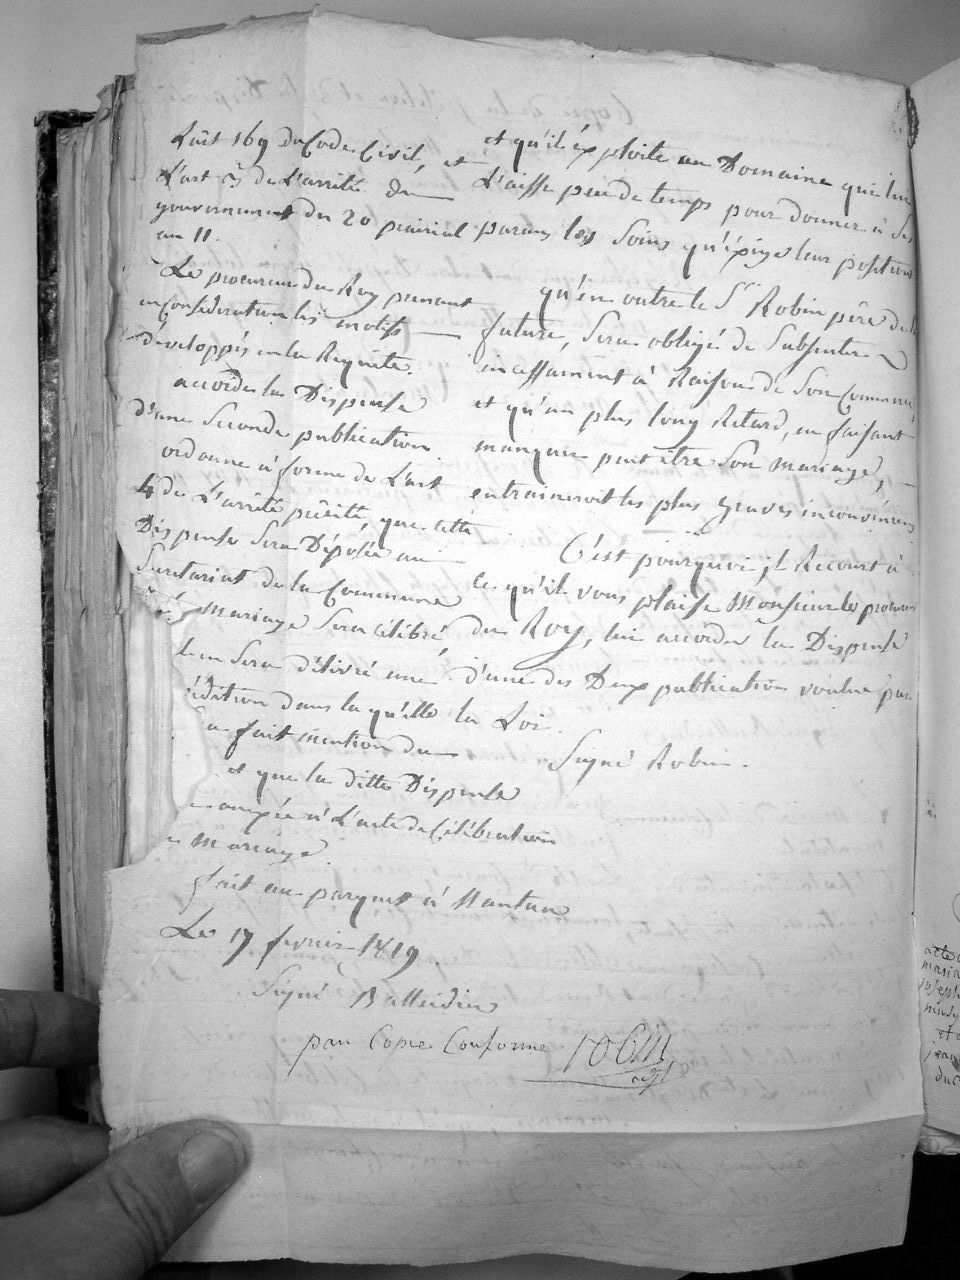 L'art 169 du Code Civil, et
L'art 3 de L'arrêté du
gouvernement du 20 prairial
an 11.
Le procureur du Roy prenant
en Considération les motifs
développés en la Requête
accorde la Dispense
d'une Seconde publication.
ordonne a forme de L'art
4 de L'arrêté précité, que cette
Dispense Sera Déposée au
Secretariat de la Commune
mariage Sera célébré
en Sera délivré une
édition dans laquelle
fait mention du
et que la ditte Dispense
à L'acte de Célébration
mariage.
fait au parquet à Nantua
Le 17 fevrier 1819.
Signé Balleidier
par Copie Conforme
et qu'il éxploite un Domaine qui lui
L'aisse peu de temps pour donner à Ses
parans les Soins qu'éxige leur position
qu'en outre le Sr Robin père de la
future, Sera obligé de S'absenter
incessament à Raison de Son Commerce,
et qu'un plus long Retard, en faisant
manquer peut être Son mariage,
entraineroit les plus graves inconvéniens
C'est pourquoi, il Recourt à
ce qu'il vous plaise Monsieur le procureur
du Roy, lui accorder la Dispense
d'une des Deux publications voulue par
la Loi.
Signé Robin.
acte
maria
joseph
et
du